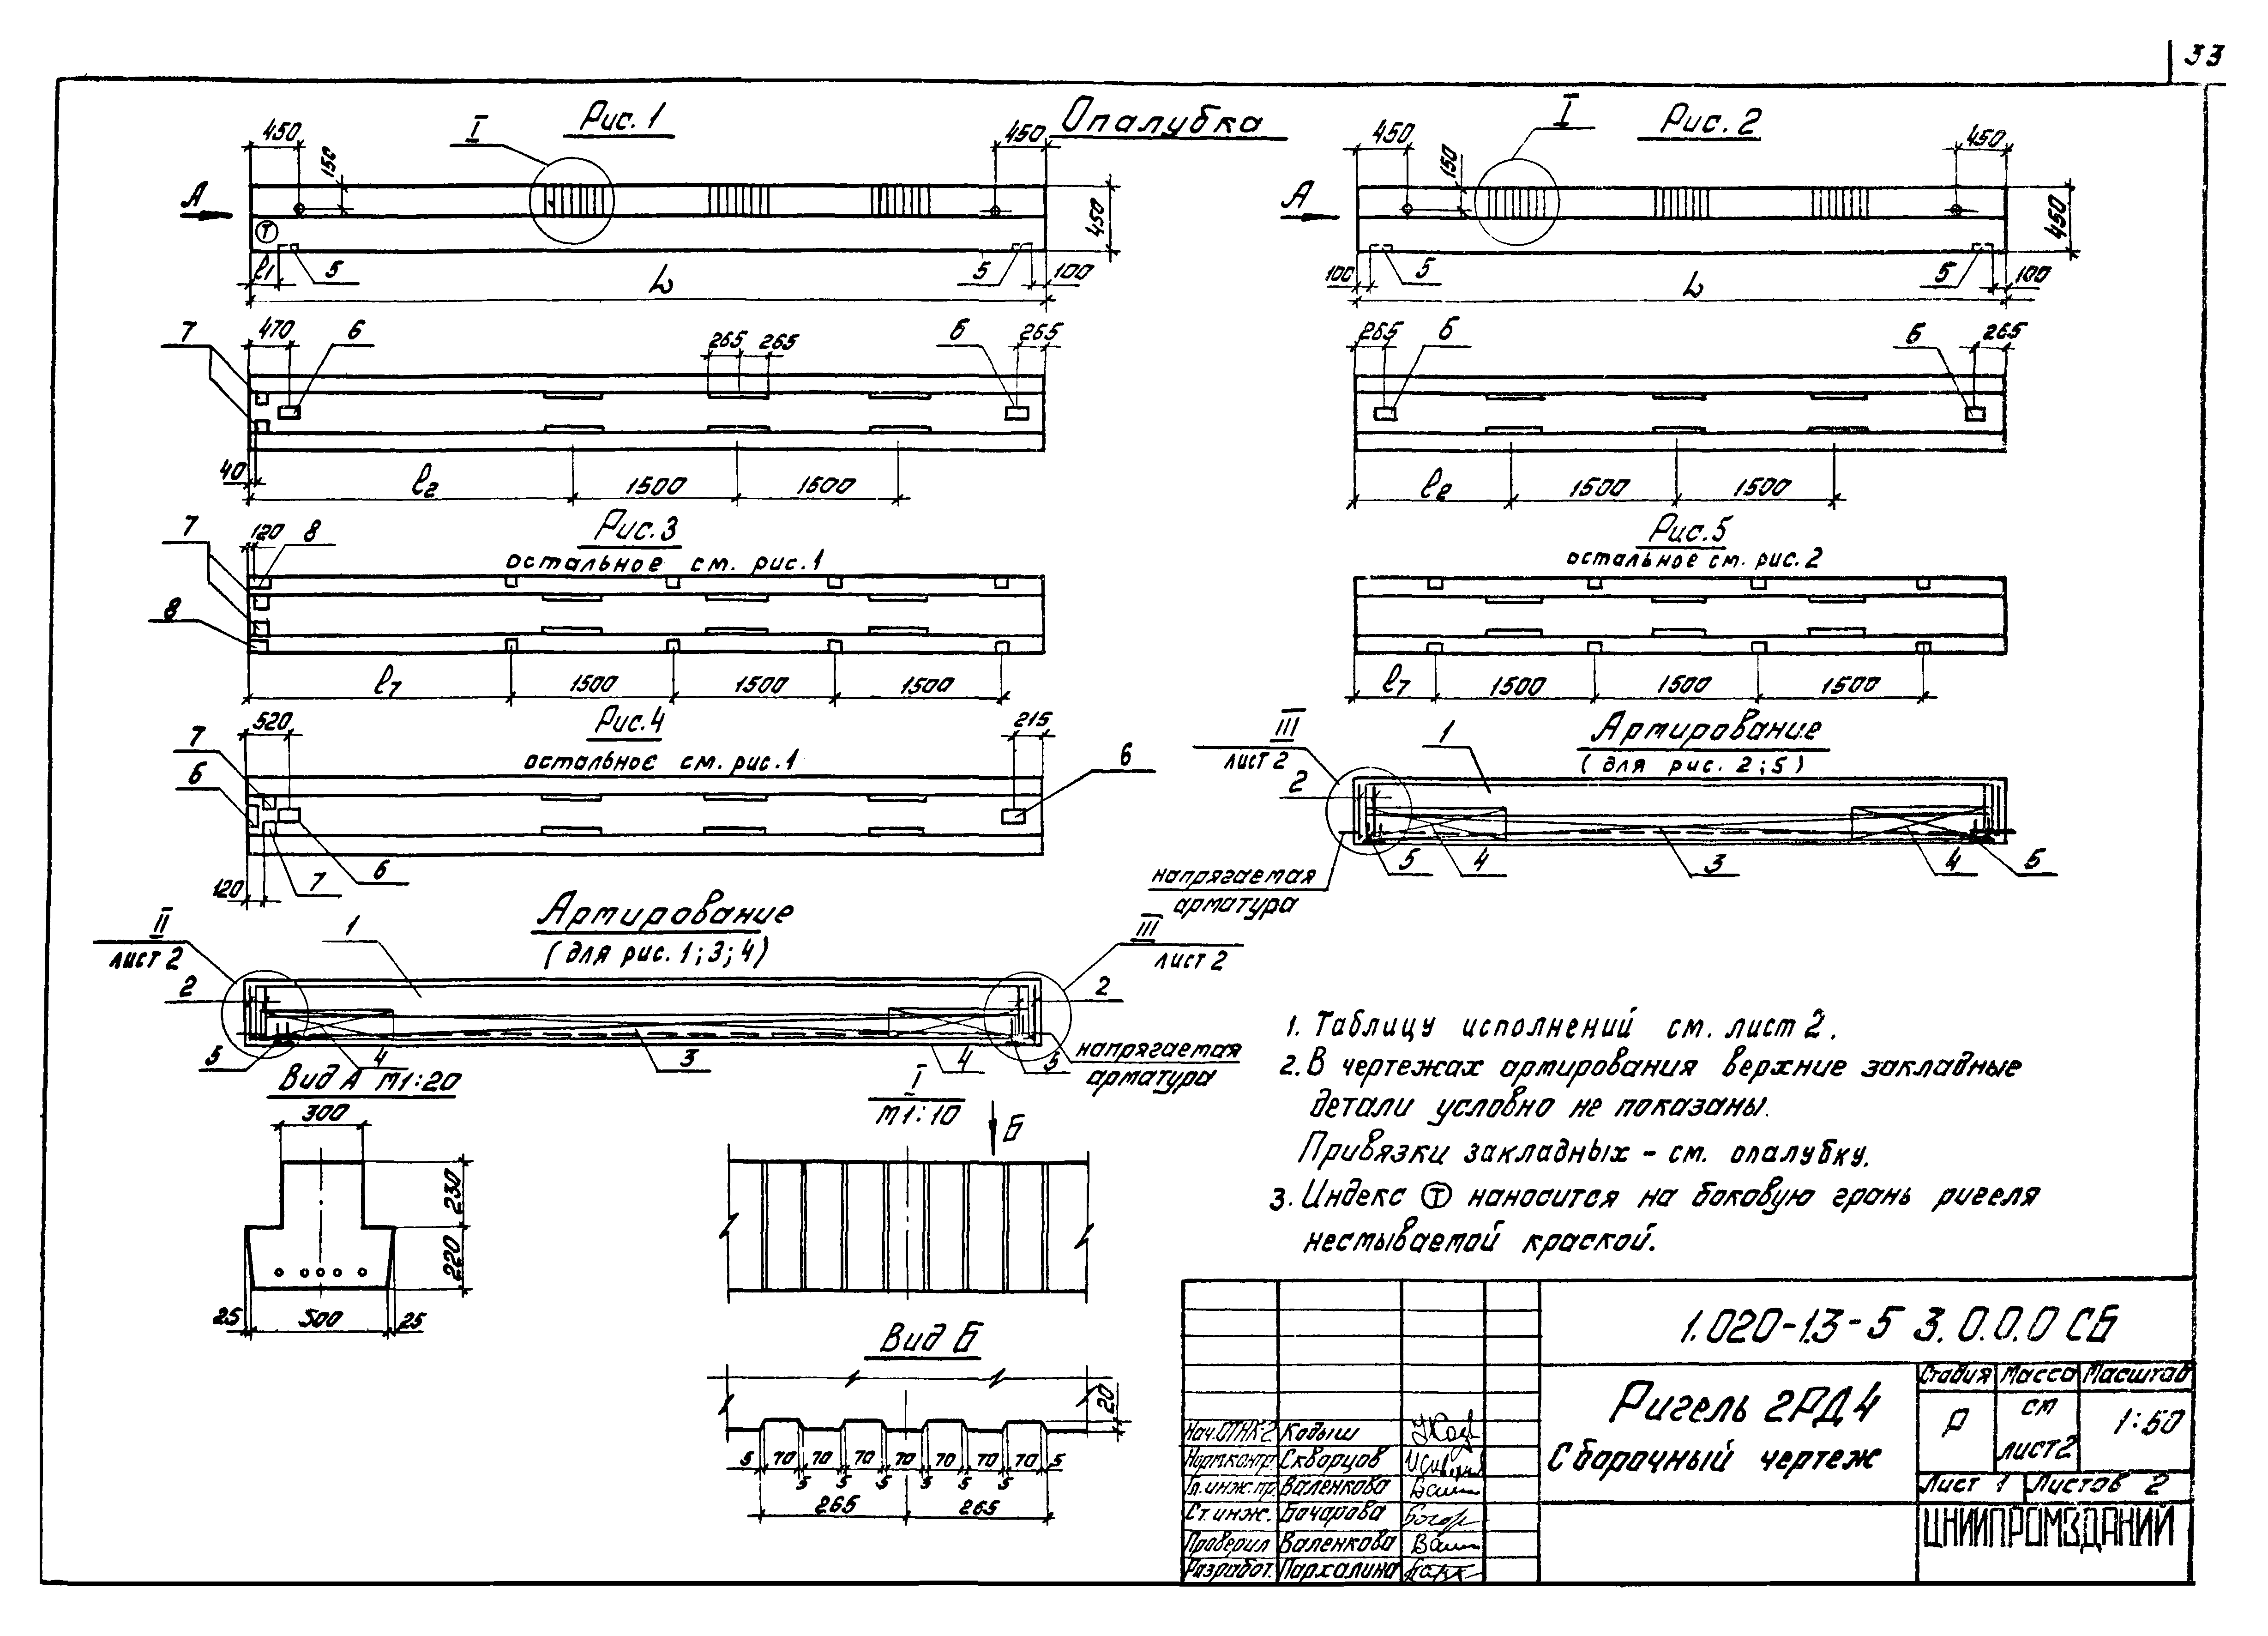 33
Опалубка
Рис. 1
I
450
450
150
А
450
Т
l1
5
5
100
L
7
470
6
265
265
6
265
40
l2
1500
1500
Рис. 2
I
450
450
150
А
450
100
5
5
100
L
265
6
6
265
l2
1500
1500
Рис. 3
остальное см. рис. 1
7
120
8
8
l7
1500
1500
1500
Рис. 5
остальное см. рис. 2
l7
1500
1500
1500
Рис. 4
остальное см. рис. 1
520
215
7
6
6
6
7
120
Армирование
(для рис. 2; 5)
III
лист 2
1
2
5
4
3
4
5
напрягаемая
арматура
Армирование
(для рис. 1; 3; 4)
II
лист 2
1
III
лист 2
2
2
5
4
3
4
5
напрягаемая
арматура
Вид А М1:20
300
230
220
25
500
25
I
М1:10
Б
Вид Б
20
5 70 70 70 70 70 70 70 5
5 5 5 5 5 5
265
265
1. Таблицу исполнений см. лист 2.
2. В чертежах армирования верхние закладные
детали условно не показаны.
Привязки закладных - см. опалубку.
3. Индекс Т наносится на боковую грань ригеля
несмываемой краской.
1.020-1.3-5 3.0.0.0 СБ
Ригель 2РД4
Сборочный чертеж
Стадия Масса Масштаб
Р см лист 2 1:50
Лист 1 Листов 2
ЦНИИПРОМЗДАНИЙ
Нач.ОТНК-2 Кодыш
Норм.контр. Скворцов
Гл.инж.пр. Валенкова
Ст.инж. Бочарова
Проверил Валенкова
Разработ. Пархалина